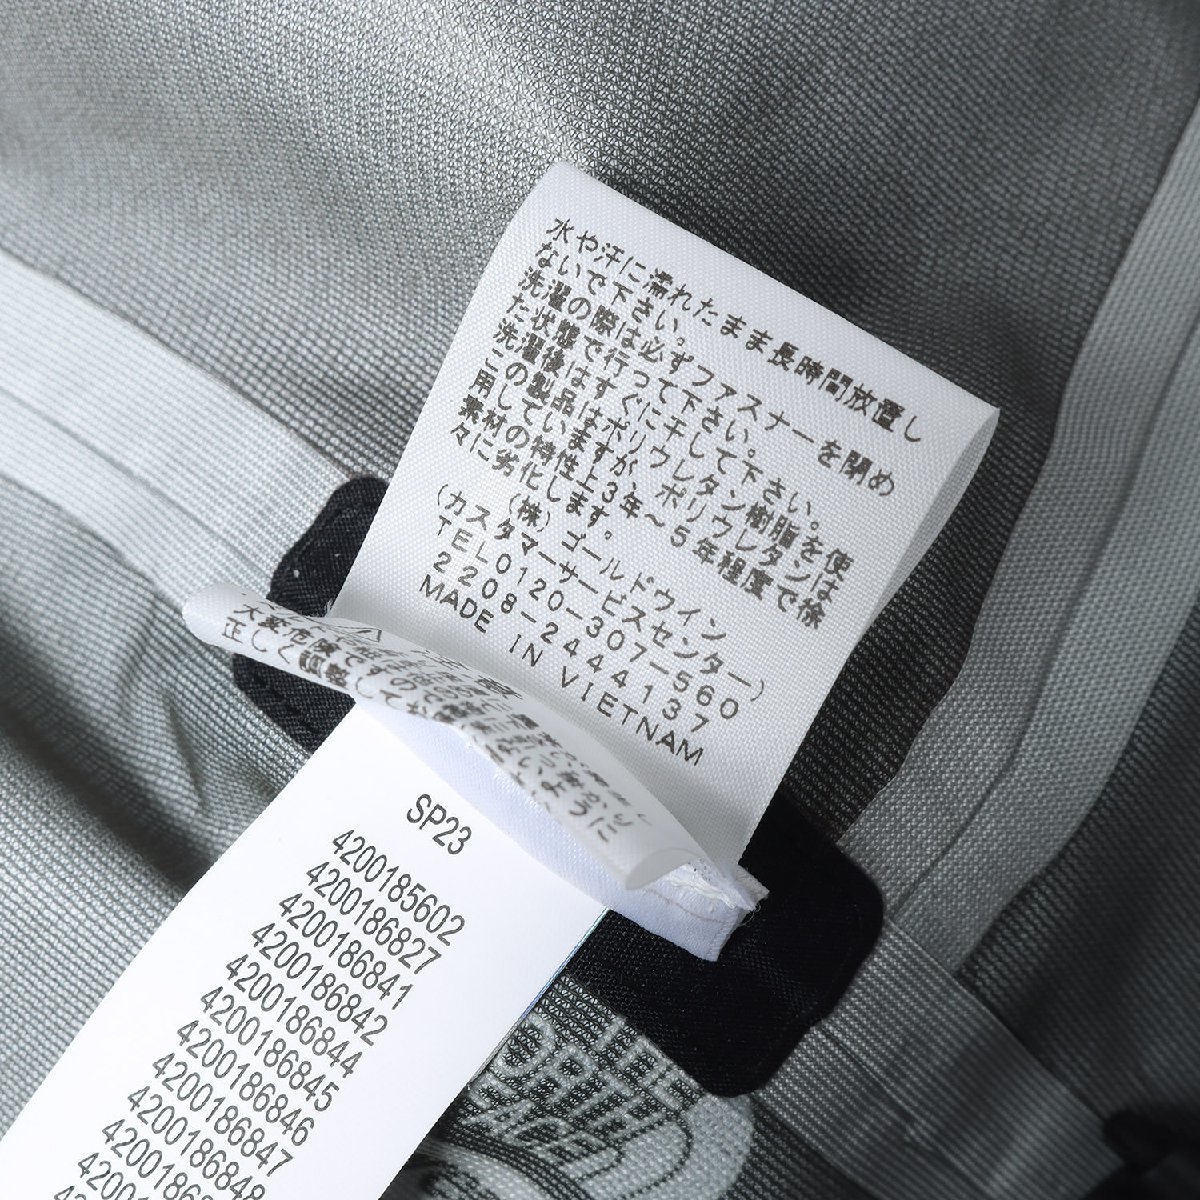 水や汗に濡れたまま長時間放置し
ないで下さい。
洗濯の際は必ずファスナーを閉め
た状態で行って下さい。
洗濯後はすぐに干して下さい。
この製品はポリウレタン樹脂を使
用していますが、ポリウレタンは
素材の特性上3年〜5年程度で徐
々に劣化します。
(株)ゴールドウイン
(カスタマーサービスセンター)
TEL0120-307-560
2208-2444137
MADE IN VIETNAM
大変危険ですので
正しく認識してお
ように
SP23
4200185602
4200186827
4200186841
4200186842
4200186844
4200186845
4200186846
4200186847
4200186848
THE
NORTH
FACE